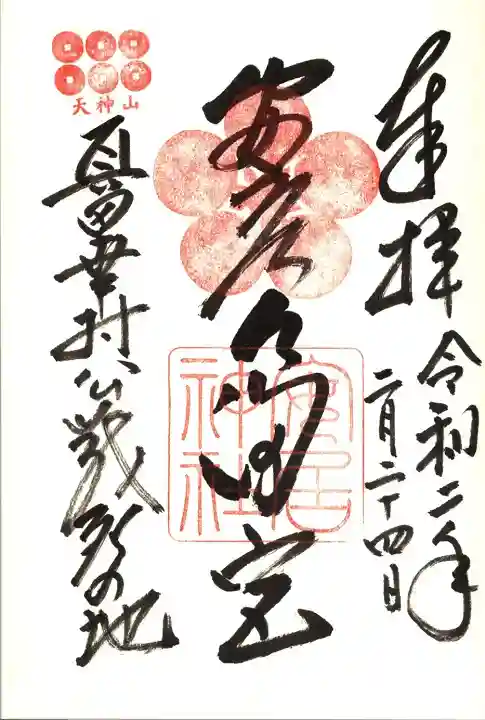 奉拝
令和二年
二月二十四日
安居天神宮
安居神社
天神山
真田幸村公戦死の地